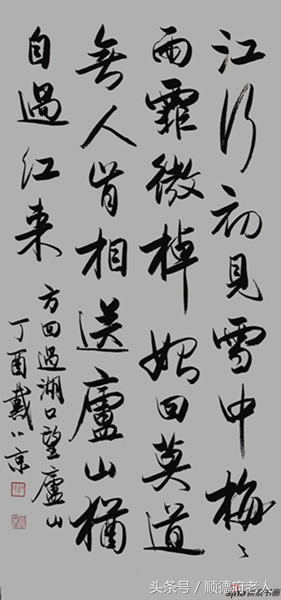 江行初見雪中梅々
雨霏微棹始回莫道
無人肯相送廬山猶
自過江来
方回過湖口望廬山
丁酉戴小京
头条号 / 顺德府老人